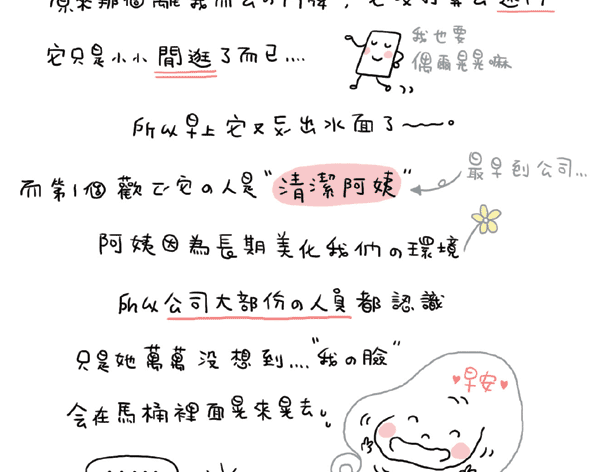 原來那個離我而去的門牌，它沒打算要逃跑
它只是小小閒逛了而已....
我也要
偶爾晃晃嘛
所以早上它又浮出水面了～～。
最早到公司...
而第1個觀しての人是"清潔阿姨"
阿姨因為長期美化我們の環境
所以公司大部份の人員都認識
只是她萬萬沒想到...."我の臉"
早安
會在馬桶裡面晃來晃去。